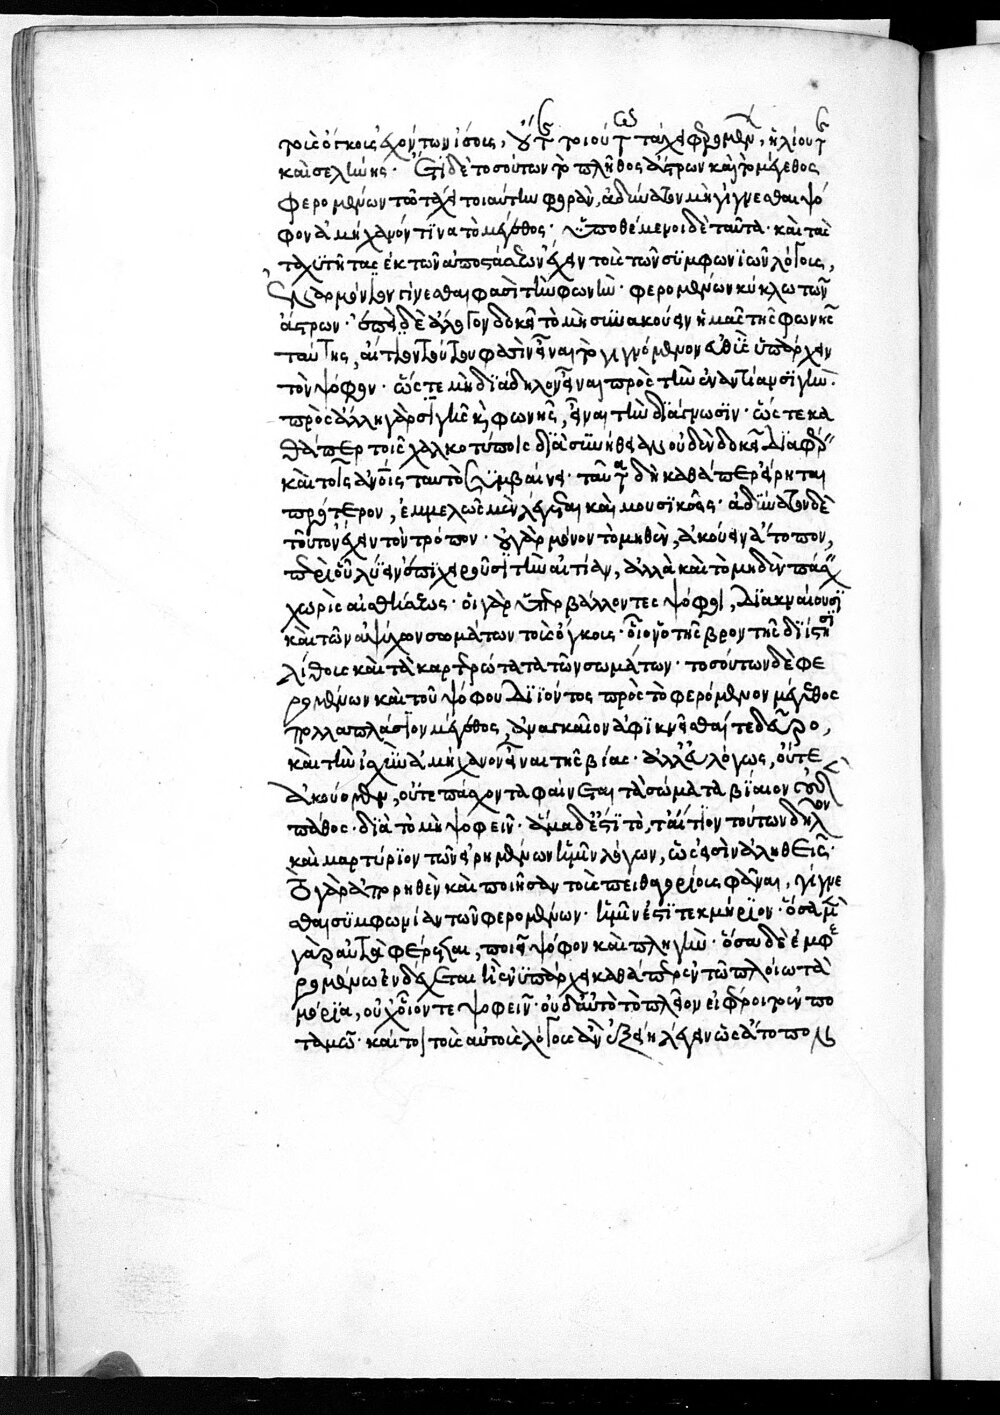 τοῖς ὄγκοις ἐχόντων ἴσοις, οὔτε τοιούτω τάχει φερομένων, ἡλίου τε
καὶ σελήνης. Ἔτι δὲ τοσούτων τὸ πλῆθος ἄστρων καὶ τὸ μέγεθος
φερομένων τῶ τάχει τοιαύτην φορὰν, ἀδύνατον μὴ γίγνεσθαι ψό
φον ἀμήχανόν τινα τὸ μέγεθος. Ὑποθέμενοι δὲ ταῦτα. καὶ τὰς
ταχυτῆτας ἐκ τῶν ἀποστάσεων ἔχειν τοὺς τῶν συμφωνιῶν λόγους,
ἐναρμόνιον γίνεσθαι φασὶ τὴν φωνὴν. φερομένων κύκλω τῶν
ἄστρων. ἐπεὶ δὲ ἄλογον δοκεῖ τὸ μὴ συνακούειν ἡμᾶς τῆς φωνῆς
ταύτης, αἴτιον τούτου φασὶν εἶναι τὸ γιγνόμενον εὐθὺς ὑπάρχειν
τὸν ψόφον. ὥστε μὴ διάδηλον εἶναι πρὸς τὴν ἐναντίαν σιγὴν.
πρὸς ἄλληλα γὰρ σιγῆς καὶ φωνῆς, εἶναι τὴν διάγνωσιν. ὥστε κα
θάπερ τοῖς χαλκοτύποις διὰ συνήθειαν οὐδὲν δοκεῖ διαφέρειν
καὶ τοῖς ἀνοις ταυτὸ συμβαίνειν. ταῦτα δὴ καθάπερ εἴρηται
πρότερον, ἐμμελῶς μὲν λέγεται καὶ μουσικῶς. ἀδύνατον δὲ
τοῦτον ἔχειν τὸν τρόπον. οὐ γὰρ μόνον τὸ μηθὲν, ἀκούειν ἄτοπον,
περὶ οὗ λύειν ἐπιχειροῦσι τὴν αἰτίαν, ἀλλὰ καὶ τὸ μηδὲν πάσχειν
χωρὶς αἰσθήσεως. οἱ γὰρ ὑπερβάλλοντες ψόφοι, διακναίουσι
καὶ τῶν ἀψύχων σωμάτων τοὺς ὄγκους. οἷον ὁ τῆς βροντῆς διίστησι
λίθους καὶ τὰ καρτερώτατα τῶν σωμάτων. τοσούτων δὲ φε
ρομένων καὶ τοῦ ψόφου διϊόντος πρὸς τὸ φερόμενον μέγεθος
πολλαπλάσιον μέγεθος, ἀναγκαῖον ἀφικνεῖσθαί τε δεῦρο,
καὶ τὴν ἰσχὺν ἀμήχανον εἶναι τῆς βίας. ἀλλ' εὐλόγως, οὔτε
ἀκούομεν, οὔτε πάσχοντα φαίνεται τὰ σώματα βίαιον οὐδὲν
πάθος. διὰ τὸ μὴ ψοφεῖν. ἅμα δ' ἐστὶ τό, τ' αἴτιον τούτων δῆλον
καὶ μαρτύριον τῶν εἰρημένων ἡμῖν λόγων, ὡς εἰσὶν ἀληθεῖς.
Τὸ γὰρ ἀπορηθὲν καὶ ποιῆσαν τοὺς πειθαγορείους φᾶναι, γίγνε
σθαι συμφωνίαν τῶν φερομένων. ἡμῖν ἐστὶ τεκμήριον. ὅσα μὲν
γὰρ αὐτὰ φέρεται, ποιεῖ ψόφον καὶ πληγὴν. ὅσα δὲ ἐμφε
ρομένω ἐνδέχεται ἢ ἐνυπάρχει καθάπερ ἐν τῶ πλοίω τὰ
μόρια, οὐχ οἷόν τε ψοφεῖν. οὐδ' αὐτὸ τὸ πλοῖον εἰ φέροιτο ἐν πο
ταμῶ. καί τοι τοὺς αὐτοὺς λόγους ἂν ἐξείη λέγειν ὡς ἄτοπον